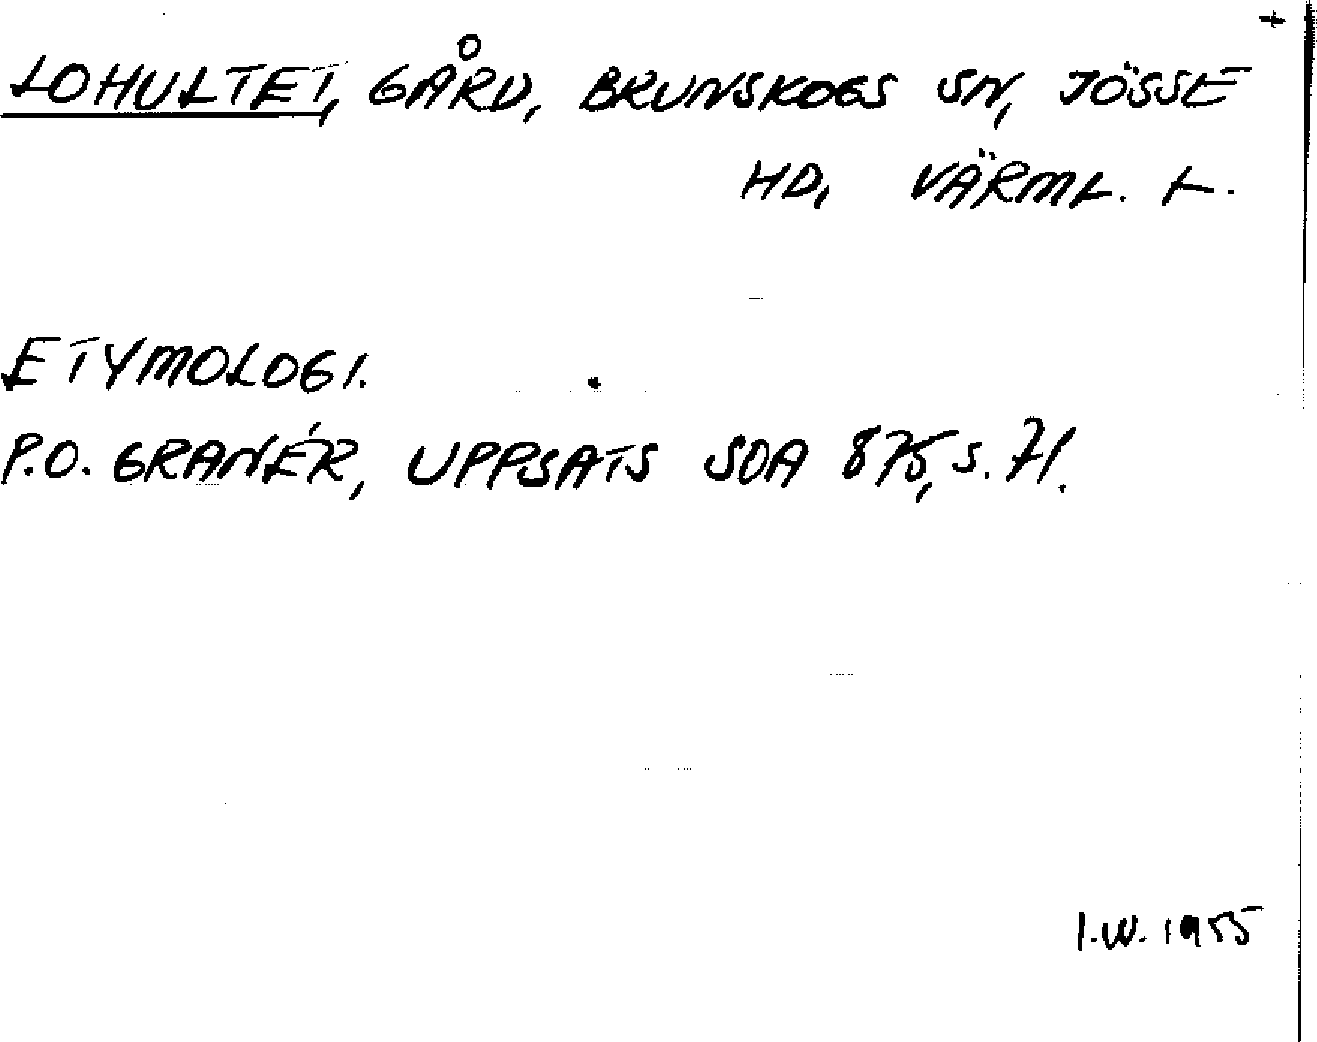 +
LOHULTET, GÅRD, BRUNSKOGS SN, JÖSSE
HD, VÄRML. L.
ETYMOLOGI.
P.O. GRANÉR, UPPSATS SOA 875, S. 71.
I.W. 1955